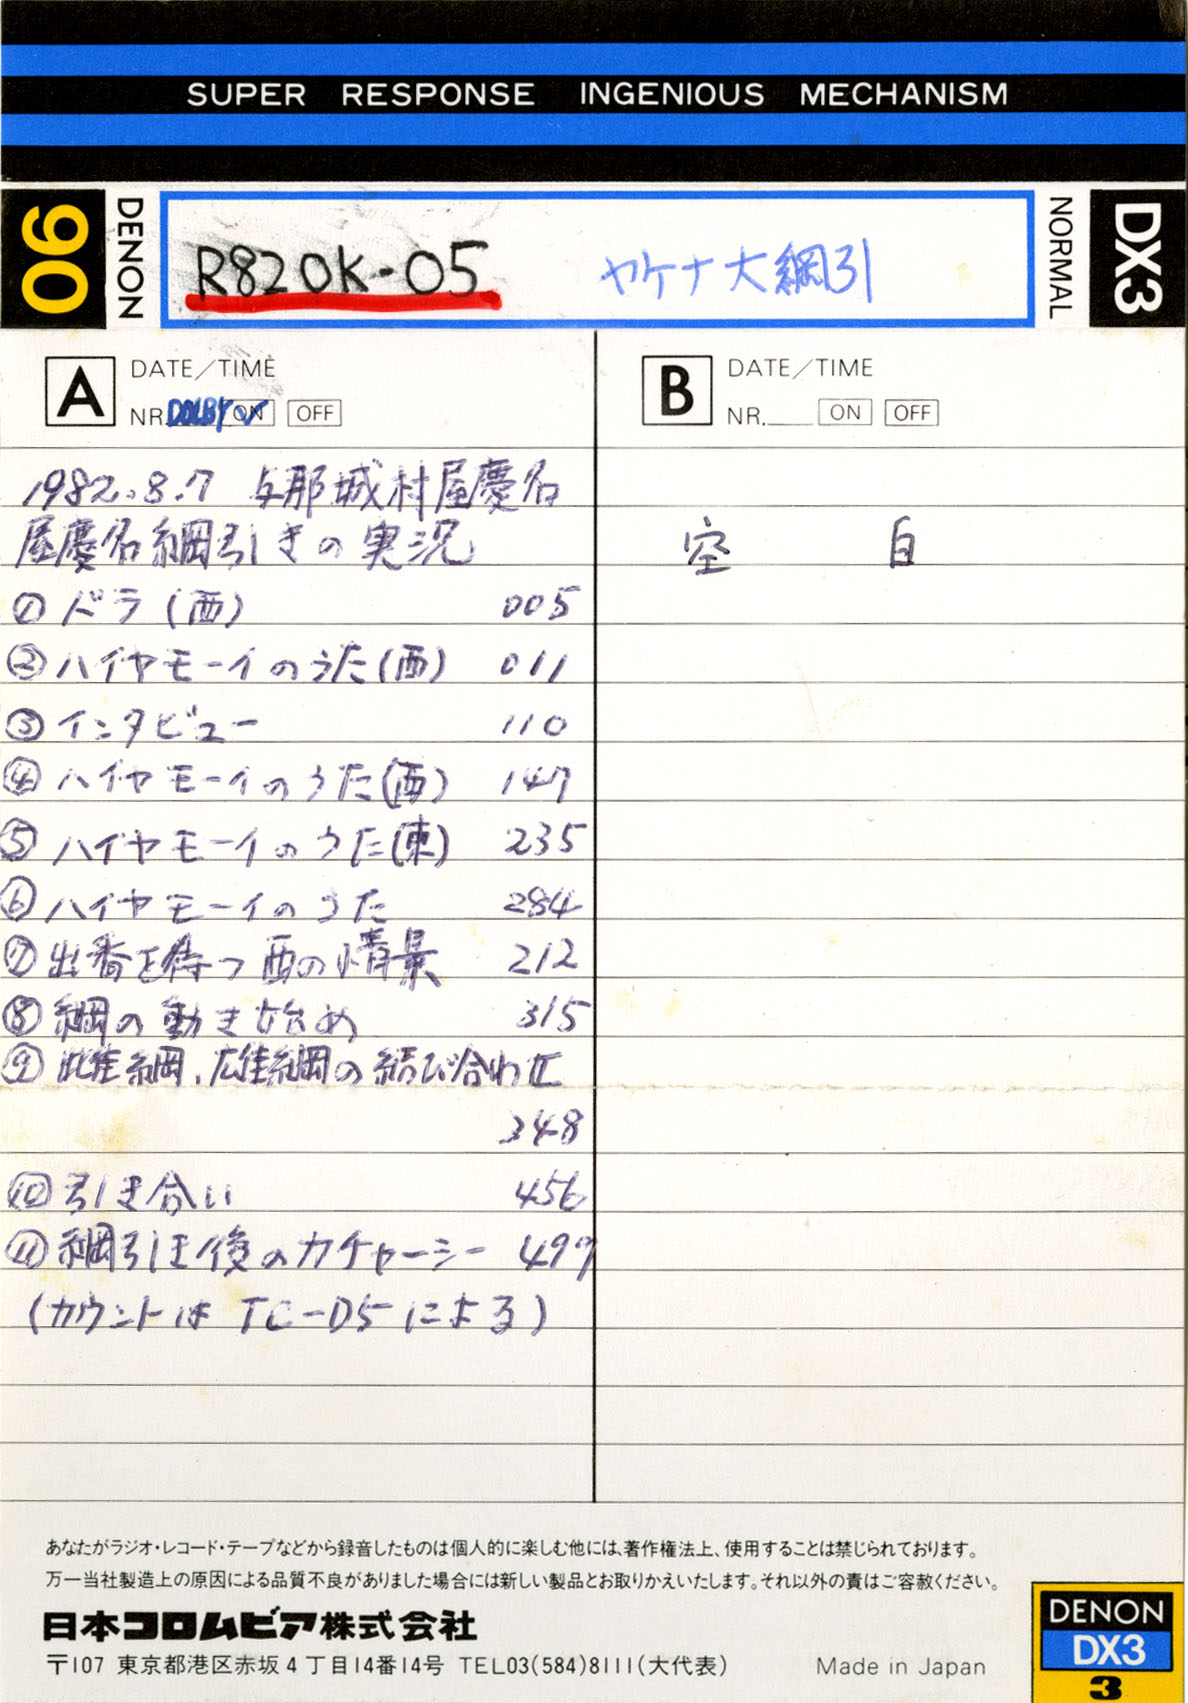 SUPER RESPONSE INGENIOUS MECHANISM
90
DENON
R820K-05 ヤケナ大綱引
NORMAL
DX3
A DATE/TIME
NR. DOLBY ✓ ON OFF
1982.8.7 与那城村屋慶名
屋慶名綱引きの実況
① ドラ(西) 005
② ハイヤモーイのうた(西) 011
③ インタビュー 110
④ ハイヤモーイのうた(西) 147
⑤ ハイヤモーイのうた(東) 235
⑥ ハイヤモーイのうた 284
⑦ 出番を待つ西の情景 212
⑧ 綱の動き始め 315
⑨ 雌綱、雄綱の結び合わせ
348
⑩ 引き合い 456
⑪ 綱引き後のカチャーシー 499
(カウントは TC-D5による)
B DATE/TIME
NR. ON OFF
空 白
あなたがラジオ・レコード・テープなどから録音したものは個人的に楽しむ他には、著作権法上、使用することは禁じられております。
万一当社製造上の原因による品質不良がありました場合には新しい製品とお取りかえいたします。それ以外の責はご容赦ください。
日本コロムビア株式会社
〒107 東京都港区赤坂4丁目14番14号 TEL03(584)8111(大代表) Made in Japan
DENON
DX3
3